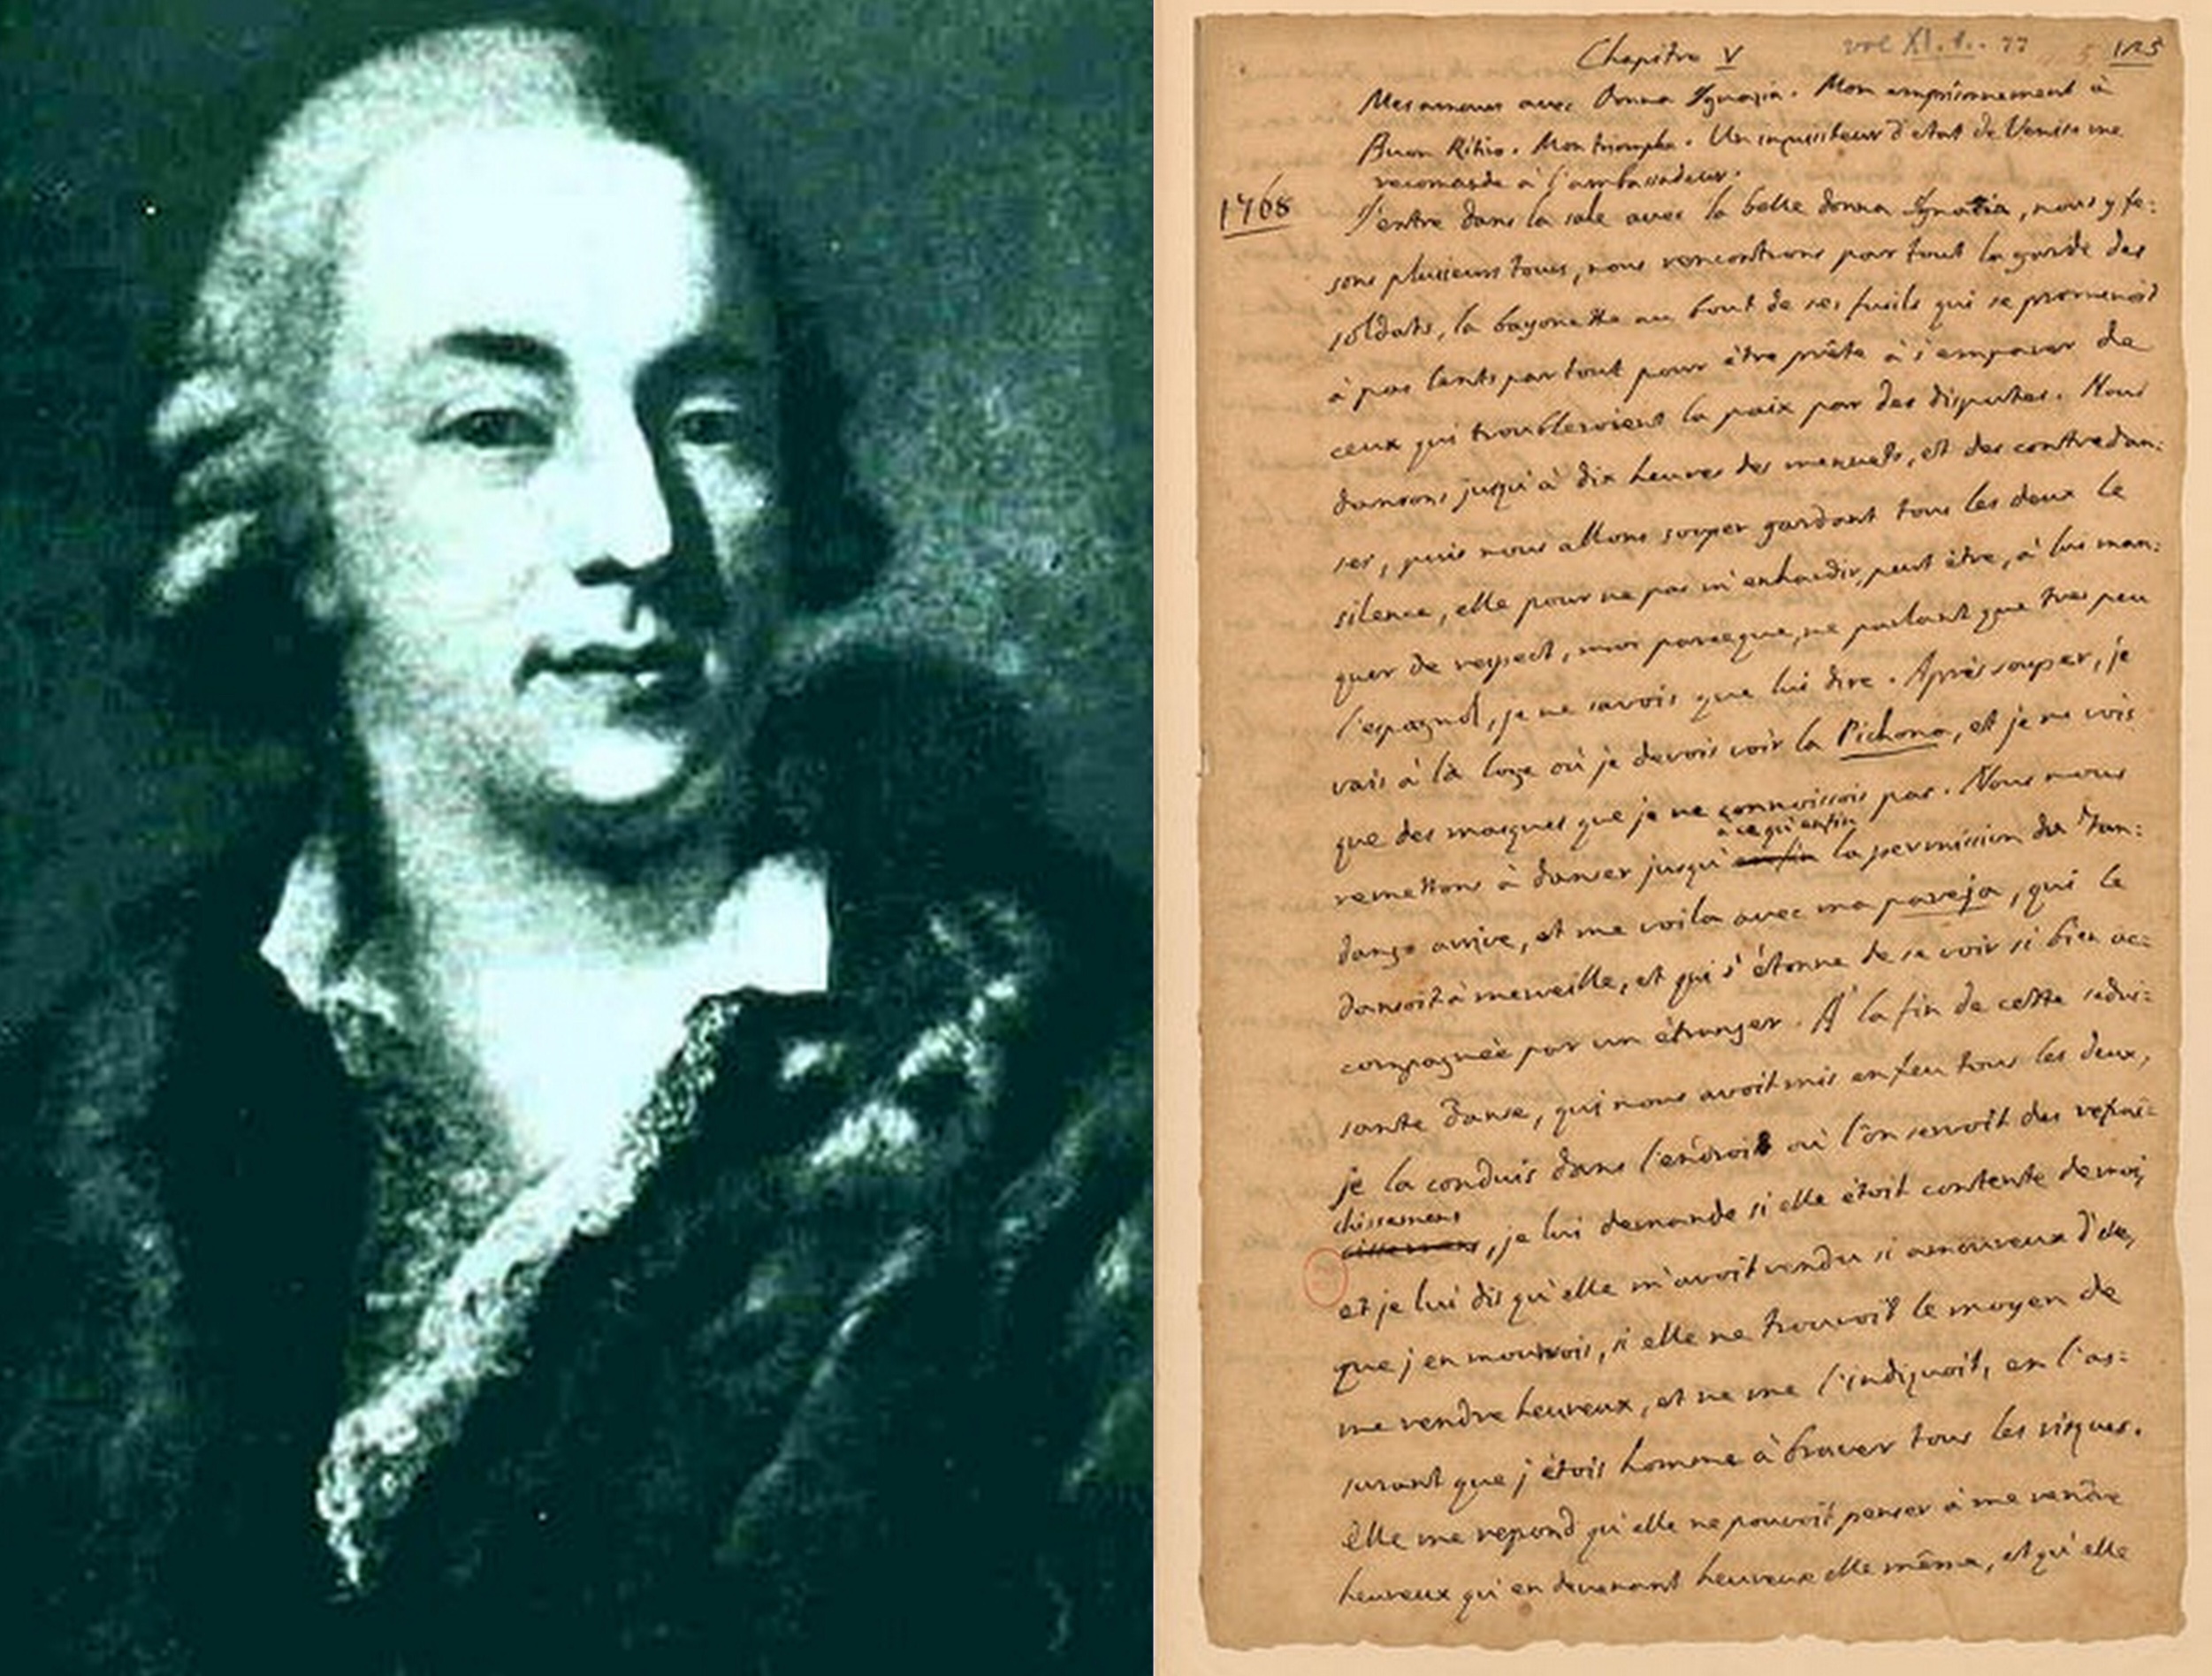 Chapitre V
vol XI. 1. 77
125
Mes amours avec Donna Ignazia. Mon emprisonnement à
Buon Ritiro. Mon triomphe. Un inquisiteur d'etat de Venise me
recomande à l'ambassadeur.
1768
J'entre dans la sale avec la belle donna Ignazia, nous y fe:
sons plusieurs tours, nous rencontrions par tout la garde des
soldats, la bayonette au bout de ses fusils qui se promenoit
à pas lents par tout pour être prête à s'emparer de
ceux qui troubleroient la paix par des disputes. Nous
dansons jusqu'à dix heures des menuets, et des contredan:
ses, puis nous allons souper gardant tous les deux le
silence, elle pour ne pas m'enhardir, peut être, à lui man:
quer de respect, moi parceque, ne parlant que tres peu
l'espagnol, je ne savois que lui dire. Après souper, je
vais à la loge où je devois voir la Pichona, et je ne vois
que des masques que je ne connoissois pas. Nous nous
à ce qu'enfin
remettons à danser jusqu' enfin la permission du fan:
dango arrive, et me voila avec ma pareja, qui le
dansoit à merveille, et qui s'étonne de se voir si bien ac:
compagnée par un étranger. À la fin de cette sedui:
sante danse, qui nous avoit mis en feu tous les deux,
je la conduis dans l'endroit où l'on servoit des rafraî:
chissemens
, je lui demande si elle étoit contente de moi,
et je lui dis qu'elle m'avoit rendu si amoureux d'elle,
que j'en mourrois, si elle ne trouvoit le moyen de
me rendre heureux, et ne me l'indiquoit, en l'as:
surant que j'étois homme à braver tous les risques.
Elle me repond qu'elle ne pouvoit penser à me rendre
heureux qu'en devenant heureuse elle même, et qu'elle